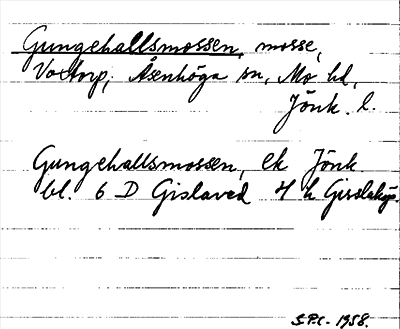 Gungehallsmossen, mosse,
Voxtorp, Åsenhöga sn, Mo hd,
Jönk. l.
Gungehallsmossen, ek Jönk
bl. 6 D Gislaved 4 h
S.P.C. 1958.